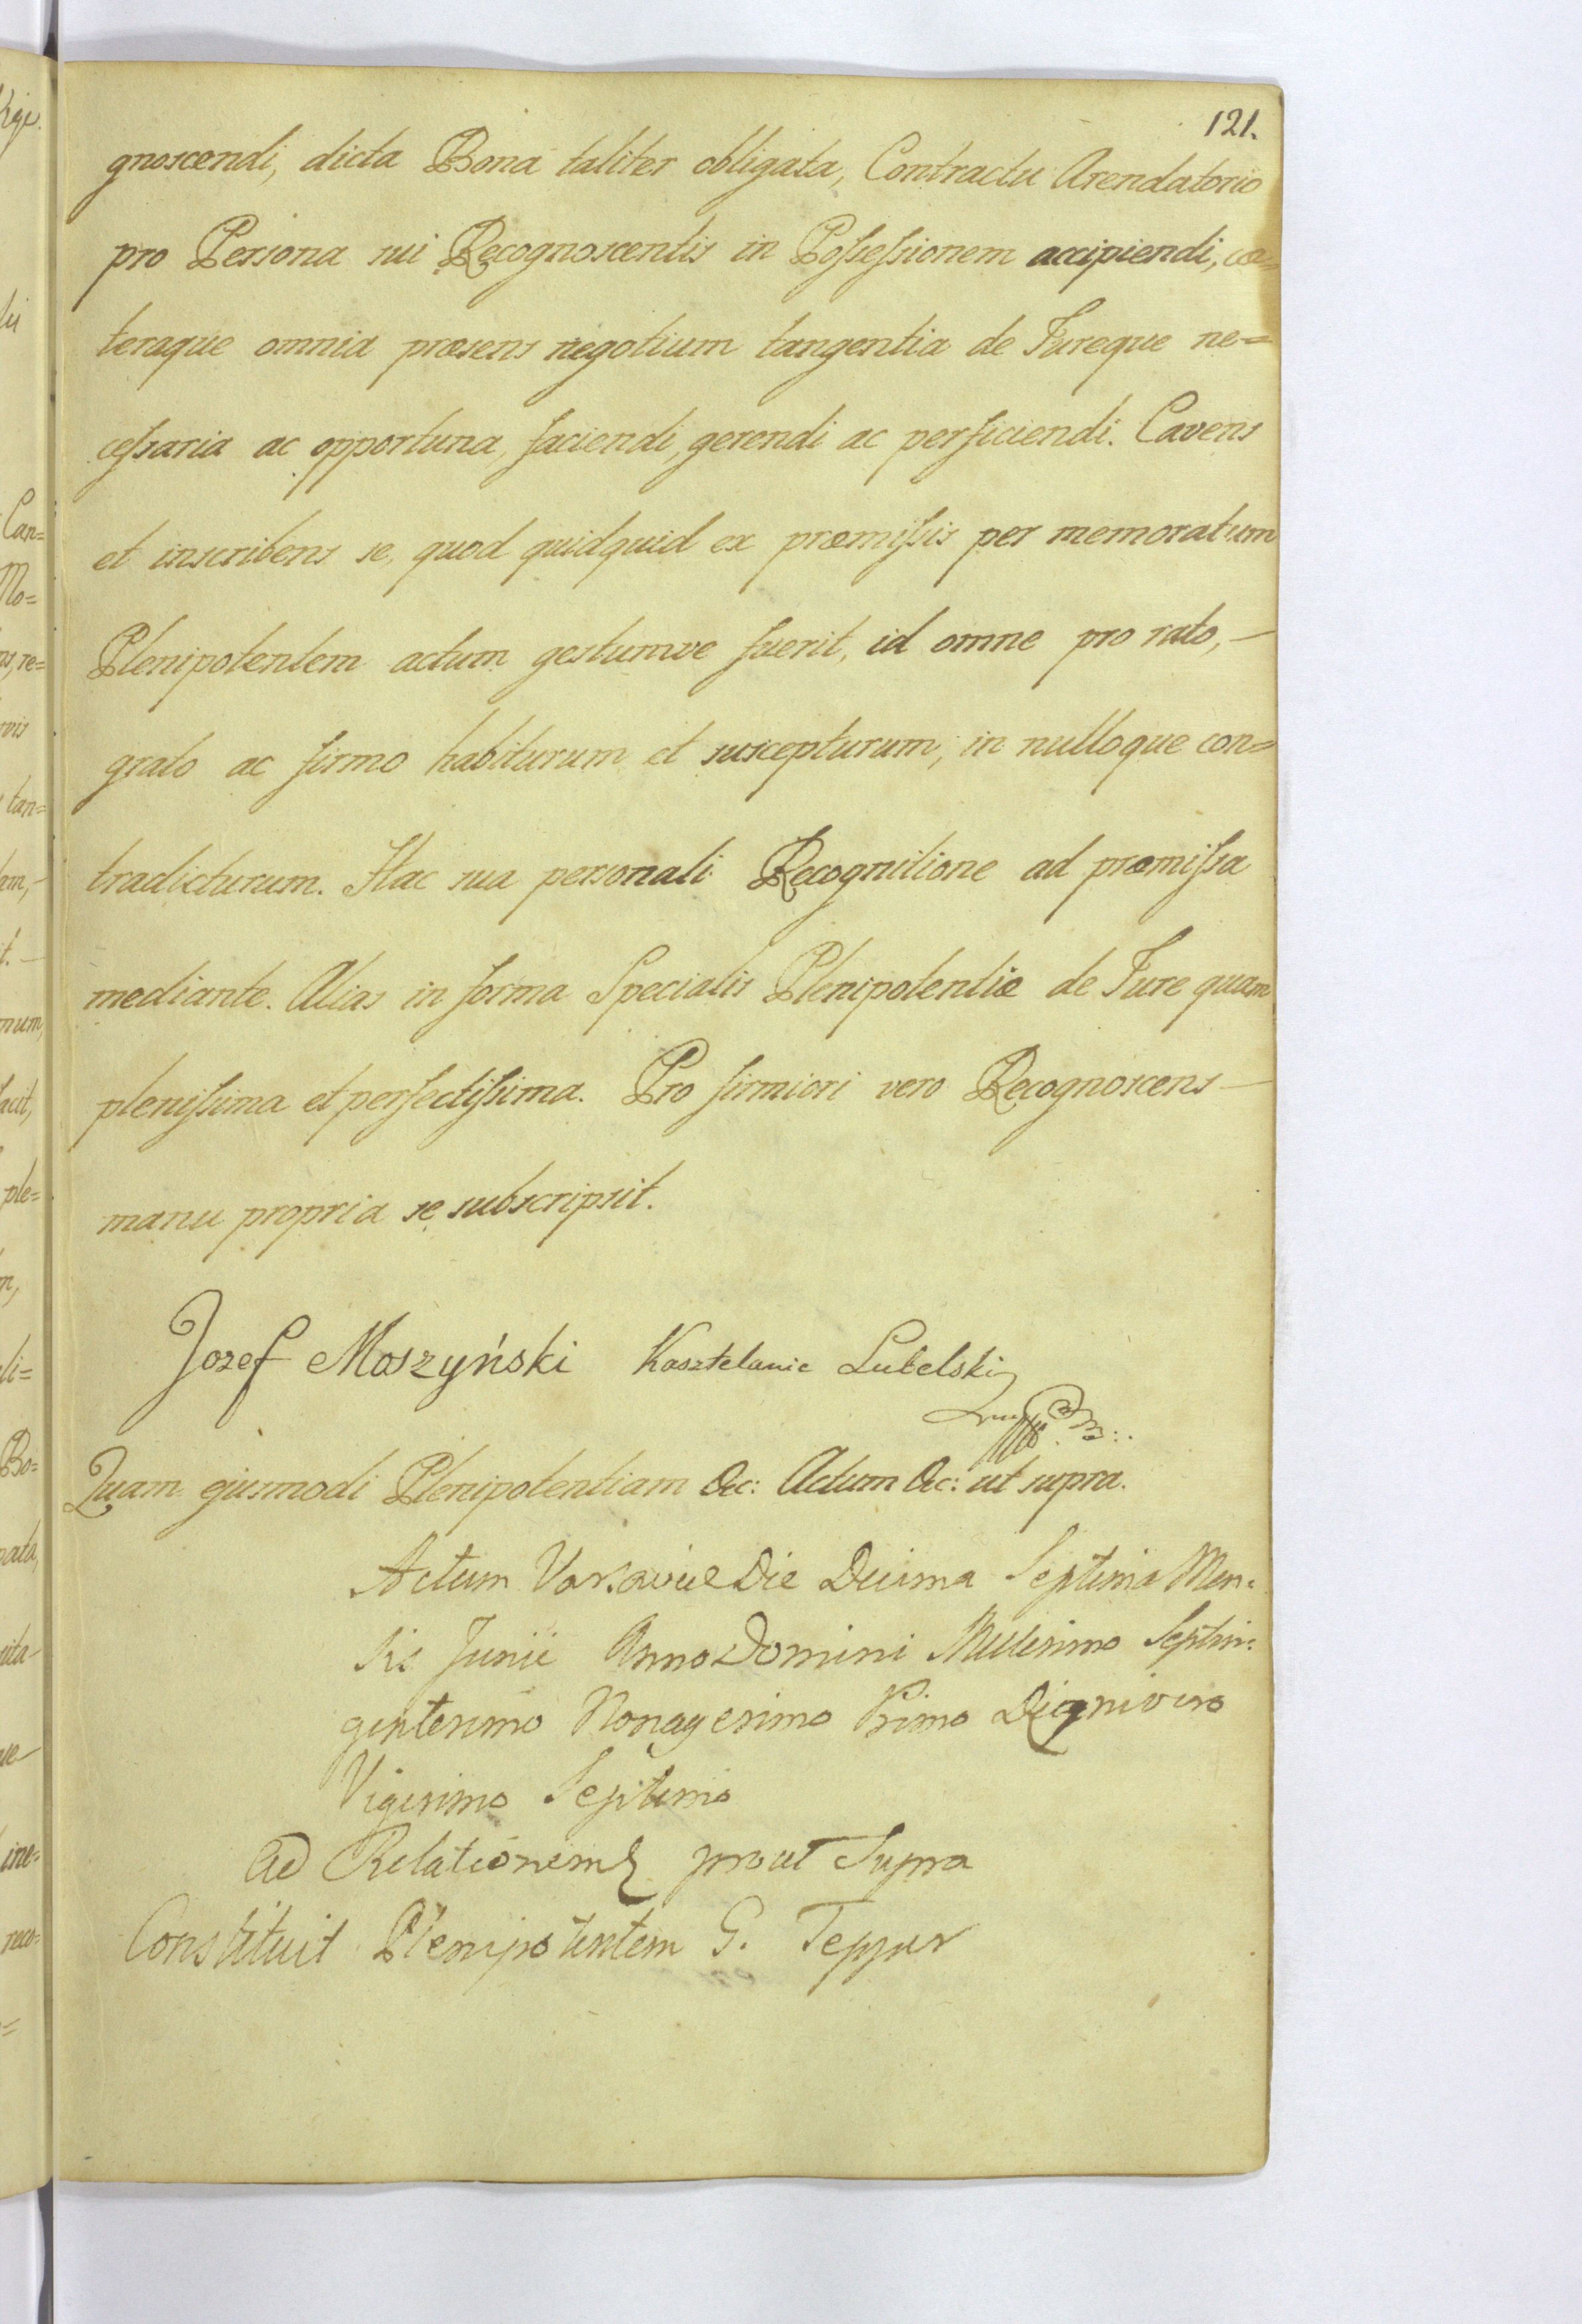 121.
gnoscendi, dicta Bona taliter obligata, Contractu Arendatorio
pro Persona sui Recognoscentis in Possessionem accipiendi, cæ=
teraque omnia præsens negotium tangentia de Jureque ne=
cessaria ac opportuna, faciendi, gerendi ac perficiendi. Cavens
et inscribens se, quod quidquid ex præmissis per memoratum
Plenipotentem actum gestumve fuerit, id omne pro rato, —
grato ac firmo habiturum et suscepturum, in nulloque con=
tradicturum. Hac sua personali Recognitione ad præmissa
mediante. Alias in forma Specialis Plenipotentiæ de Jure quam
plenissima et perfectissima. Pro firmiori vero Recognoscens —
manu propria se subscripsit.
Jozef Moszyński Kasztelanic Lubelski
Quam ejusmodi Plenipotentiam &c: Actum &c: ut supra.
Actum Varsaviæ Die Decima Septima Men:
sis Junii Anno Domini Millesimo Septin:
gentesimo Nonagesimo Primo Regni vero
Vigesimo Septimo
Ad Relationem prout Supra
Constituit Plenipotentem G. Tepper